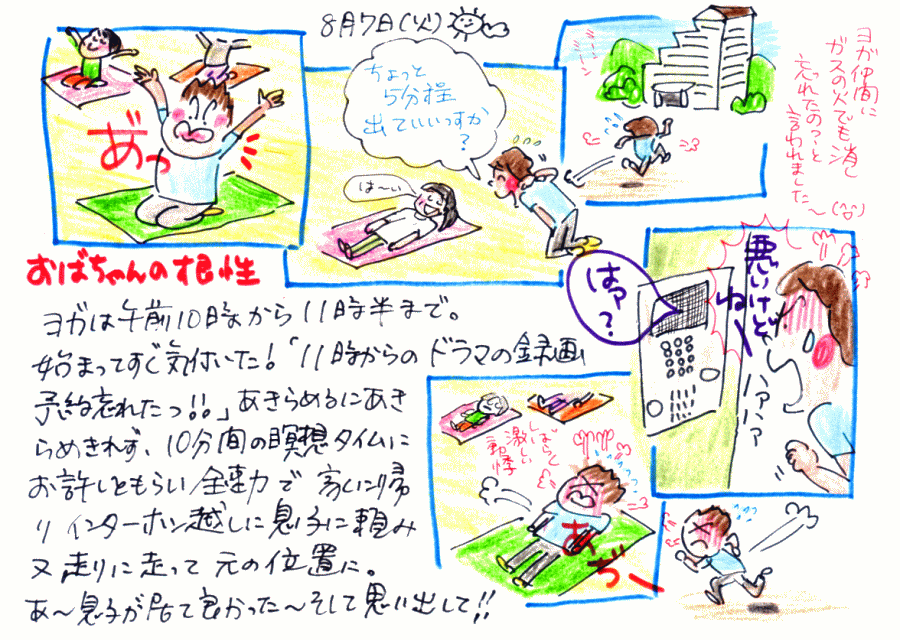 8月7日(火)
あっ
ちょっと
5分程
出ていいっすか
?
は〜い
ミーンミーン
ヨガ仲間に
ガスの火でも消し
忘れたのっと
言われました
〜(^^;)
おばちゃんの根性
ヨガは午前10時から11時半まで。
始まってすぐ気付いた!「11時からのドラマの録画
予約忘れたっ!!」あきらめるにあき
らめきれず、10分間の瞑想タイムに
お許しをもらい全速力で家に帰
りインターホン越しに息子に頼み
又走りに走って元の位置に。
あ〜息子が居て良かった〜そして思い出して!!
はァ?
悪いけど
ね〜
ハァハァ
しばらく
激しい
動悸
あぢ〜